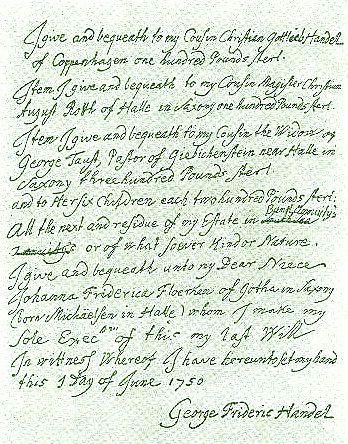 I give and bequeath to my Cousin Christian Gottlieb Handel
of Coppenhagen one hundred Pounds sterl.
Item I give and bequeath to my Cousin Magister Christian
August Rotth of Halle in Saxony one hundred Pounds sterl.
Item I give and bequeath to my Cousin the Widow of
George Taust, Pastor of Giebichenstein near Halle in
Saxony three hundred Pounds sterl.
and to Her six Children each two hundred Pounds sterl.
All the next and residue of my Estate in Bank Annuity's
or of what soever Kind or Nature,
I give and bequeath unto my Dear Niece
Johanna Friderica Floerken of Gotha in Saxony
(born Michaelsen in Halle) whom I make my
Sole Exec.rix of this my last Will
In wittness Whereof I have hereunto set my hand
this 1 Day of June 1750
George Frideric Handel